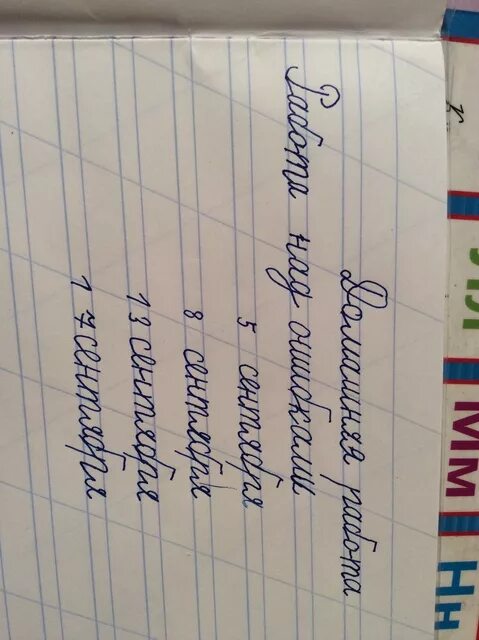 Домашняя работа
Работа над ошибками
5 сентября
8 сентября
13 сентября
17 сентября
Лл
Мм
Нн